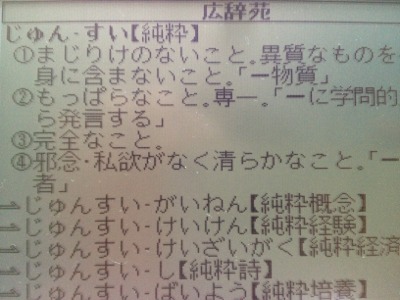 広辞苑
じゅん‐すい【純粋】
①まじりけのないこと。異質なものを
身に含まないこと。「―物質」
②もっぱらなこと。専一。「―に学問的
ら発言する」
③完全なこと。
④邪念・私欲がなく清らかなこと。「―
者」
→じゅんすい‐がいねん【純粋概念】
→じゅんすい‐けいけん【純粋経験】
→じゅんすい‐けいざいがく【純粋経済
→じゅんすい‐し【純粋詩】
→じゅんすい‐ばいよう【純粋培養】